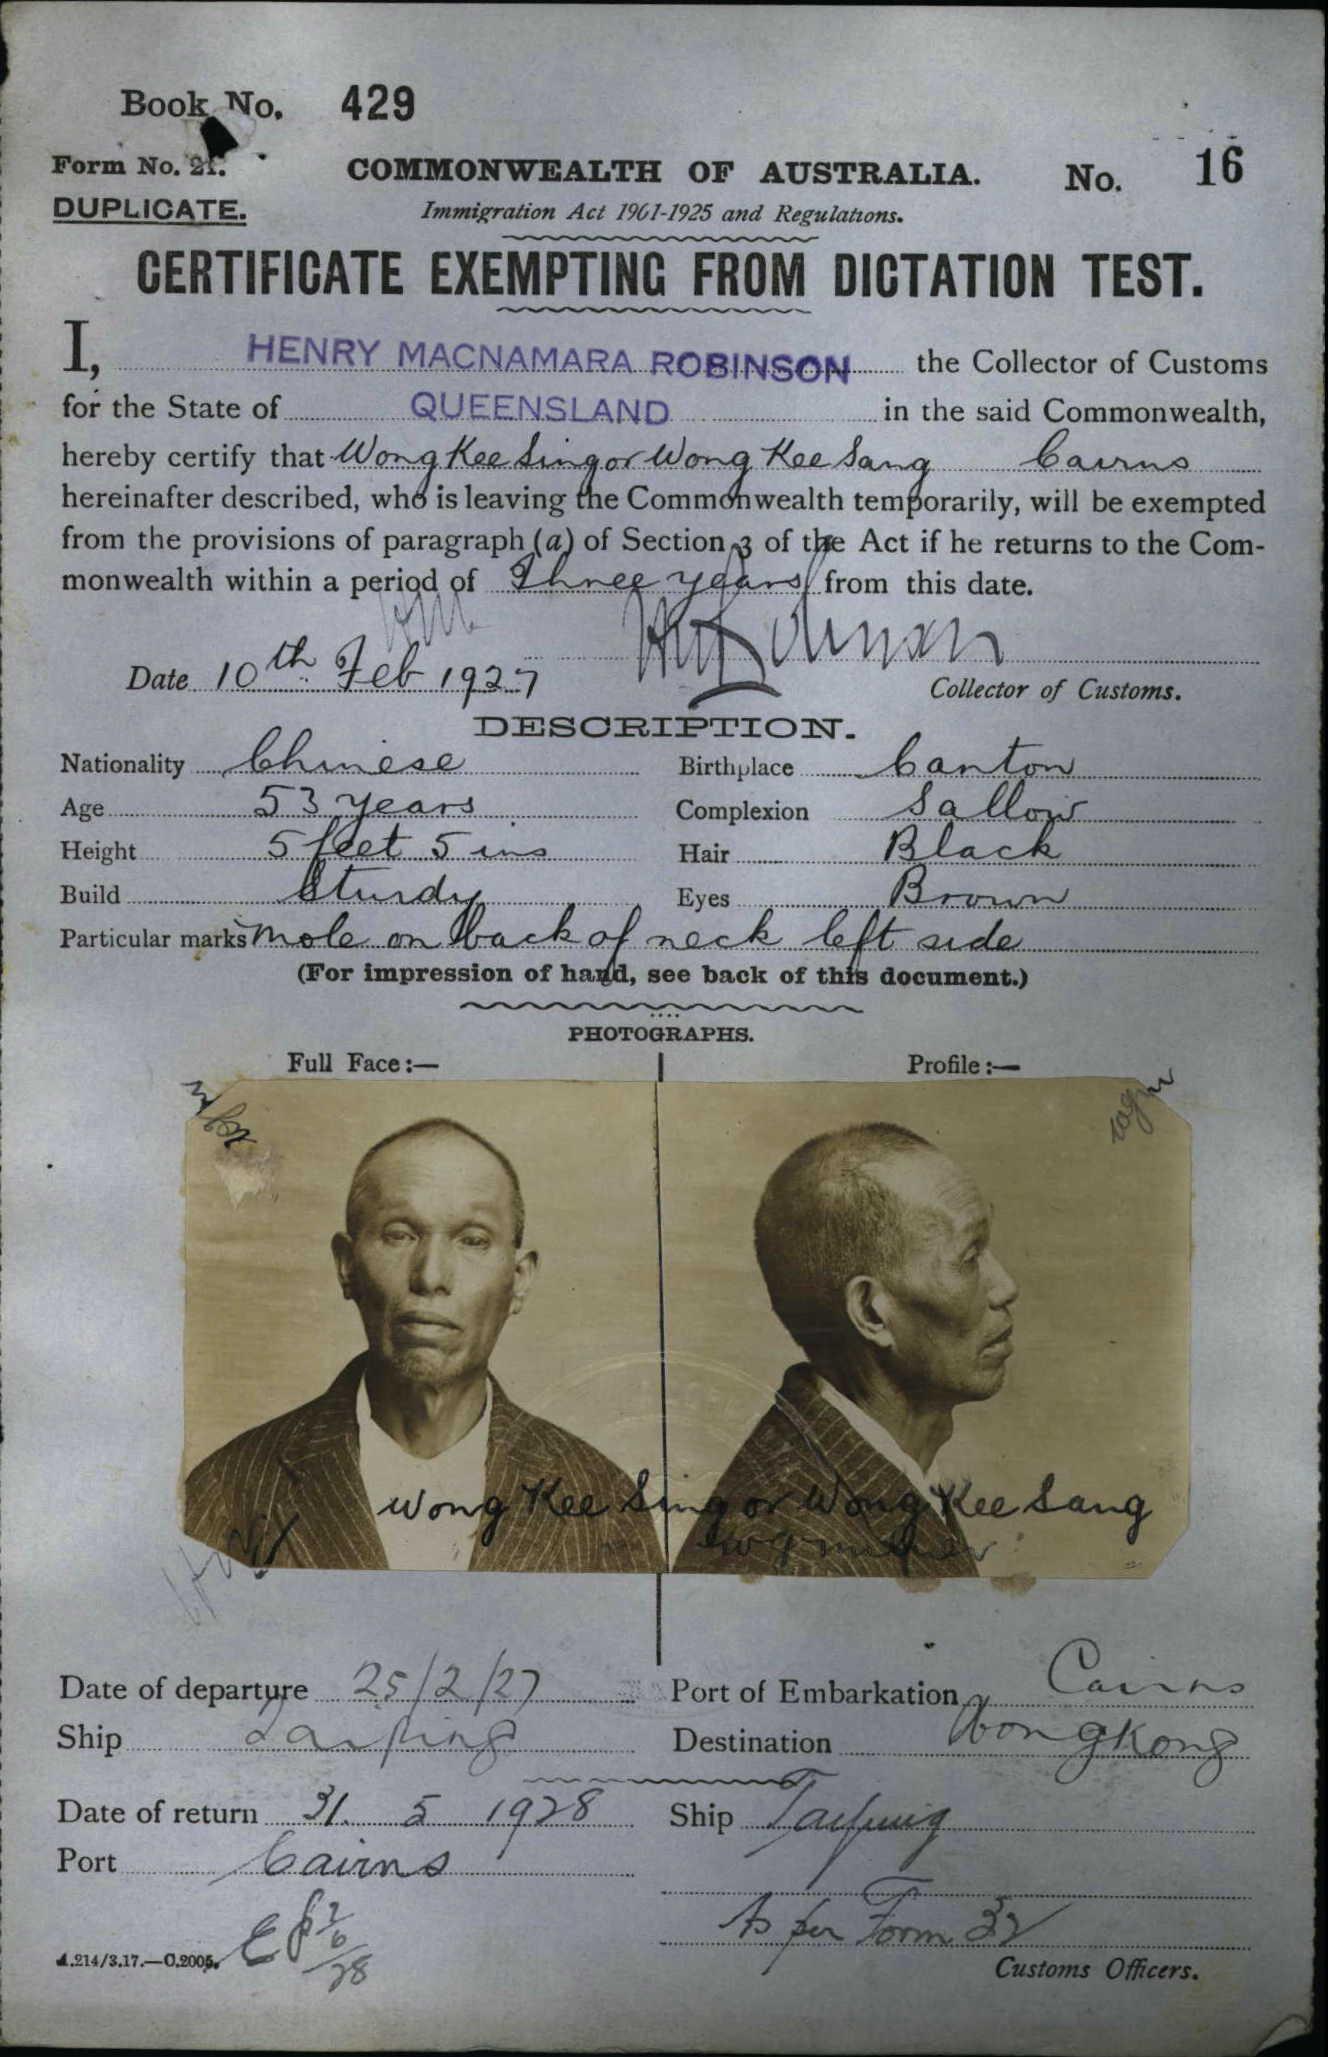 Book No. 429
Form No. 21.
COMMONWEALTH OF AUSTRALIA.
No. 16
DUPLICATE.
Immigration Act 1901-1925 and Regulations.
CERTIFICATE EXEMPTING FROM DICTATION TEST.
I, HENRY MACNAMARA ROBINSON the Collector of Customs
for the State of QUEENSLAND in the said Commonwealth,
hereby certify that Wong Kee Sing or Wong Kee Sang Cairns
hereinafter described, who is leaving the Commonwealth temporarily, will be exempted
from the provisions of paragraph (a) of Section 3 of the Act if he returns to the Com-
monwealth within a period of Three years from this date.
Date 10th Feb 1927
Collector of Customs.
DESCRIPTION.
Nationality Chinese Birthplace Canton
Age 53 years Complexion Sallow
Height 5 feet 5 ins Hair Black
Build Sturdy Eyes Brown
Particular marks Mole on back of neck left side
(For impression of hand, see back of this document.)
PHOTOGRAPHS.
Full Face:— Profile:—
Wong Kee Sing or Wong Kee Sang
Date of departure 25/2/27 Port of Embarkation Cairns
Ship Taiping Destination HongKong
Date of return 31. 5 1928 Ship Taiping
Port Cairns
As per Form 32
A.214/3.17.—C.2005.
Customs Officers.